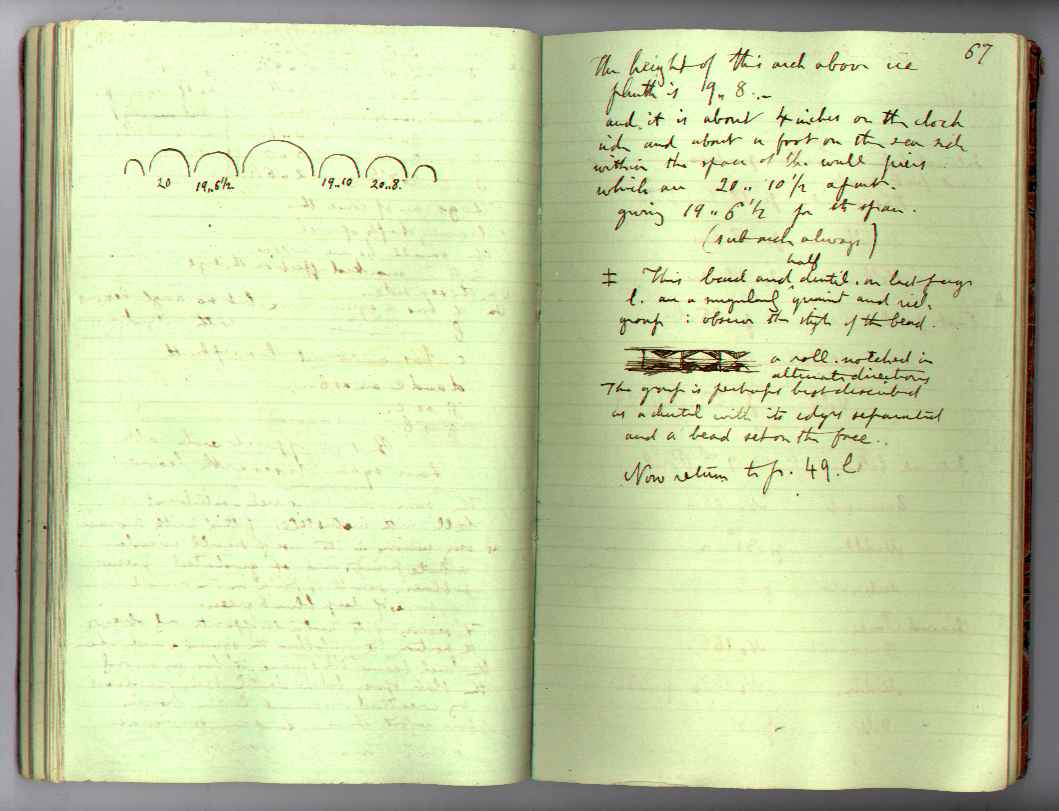 20 19..6½ 19..10 20..8.
67
The height of this arch above its
plinth is 9.. 8..
and it is about 4 inches on the clock
side and about a foot on the sea side
within the space of the wall piers
which are 20.. 10½ apart.
giving 19.. 6½ for its span.
(sub arch always)
half
‡ This bead and dentil. on last page
l. are a singularly quaint and rich
group: observe the style of the bead.
a roll. notched in
alternate directions
The group is perhaps best described
as a dentil with its edges separated
and a bead set on the face..
Now return to p. 49. l